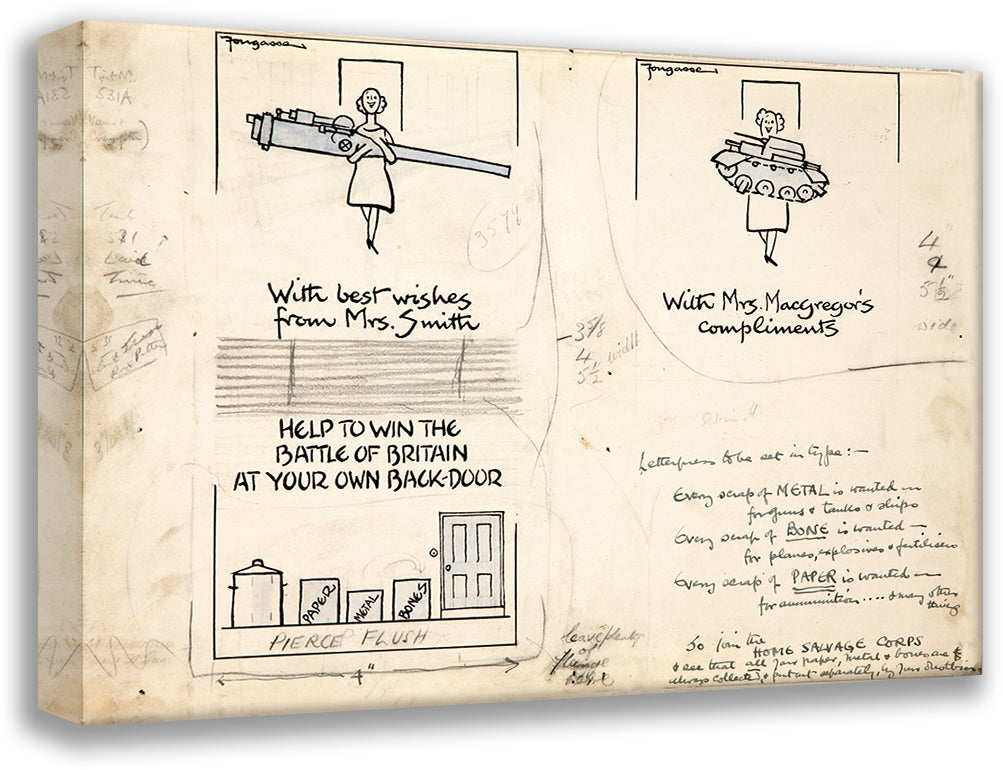 Fougasse
With best wishes
from Mrs. Smith
3574
HELP TO WIN THE
BATTLE OF BRITAIN
AT YOUR OWN BACK-DOOR
PAPER
METAL
BONES
PIERCE FLUSH
4"
Fougasse
With Mrs. Macgregor's
compliments
4
5½"
wide
3⅝
4 width
5½
Letterpress to be set in type:-
Every scrap of METAL is wanted —
for guns & tanks & ships
Every scrap of BONE is wanted —
for planes, explosives & fertilisers
Every scrap of PAPER is wanted —
for ammunition .... & many other
things
So join the
HOME SALVAGE CORPS
& see that all your paper, metal & bones are
always collected, & put out separately, by your dustbin
leave plenty
of